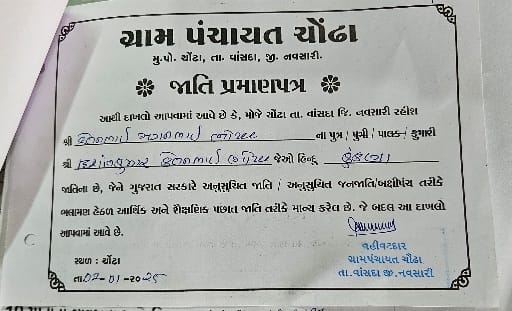 ગ્રામ પંચાયત ચોંઢા
મુ.પો. ચોંઢા, તા. વાંસદા, જી. નવસારી.
જાતિ પ્રમાણપત્ર
આથી દાખલો આપવામાં આવે છે કે, મોજે ચોંઢા તા. વાંસદા જિ. નવસારી રહીશ
શ્રી ના પુત્ર / પુત્રી / પાલક / કુમારી
શ્રી જેઓ હિન્દૂ કુંકણા
જાતિના છે, જેને ગુજરાત સરકારે અનુસુચિત જાતિ / અનુસુચિત જનજાતિ/બક્ષીપંચ તરીકે
ભલામણ હેઠળ આર્થિક અને શૈક્ષણિક પછાત જાતિ તરીકે માન્ય કરેલ છે. જે બદલ આ દાખલો
આપવામાં આવે છે.
સ્થળ : ચોંઢા
તા.07-01-૨૦25
વહીવટદાર
ગ્રામપંચાયત ચોંઢા
તા.વાંસદા જી.નવસારી